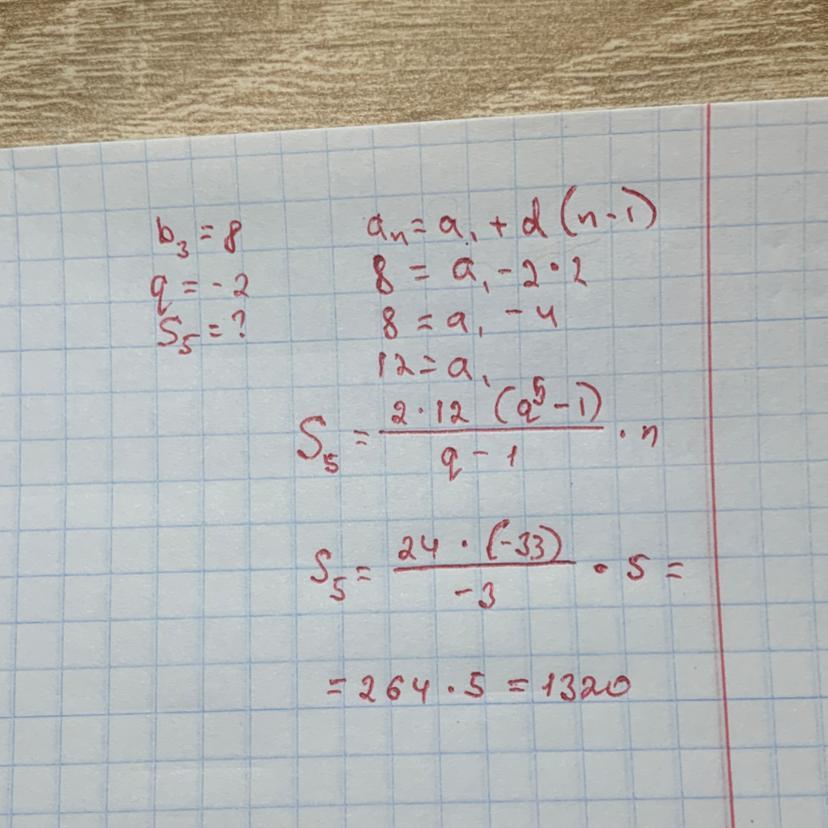 b₃ = 8
q = -2
S₅ = ?
aₙ = a₁ + d (n-1)
8 = a₁ - 2 · 2
8 = a₁ - 4
12 = a₁
S₅ = \frac{2 · 12 (q⁵ - 1)}{q - 1} · n
S₅ = \frac{24 · (-33)}{-3} · 5 =
= 264 · 5 = 1320